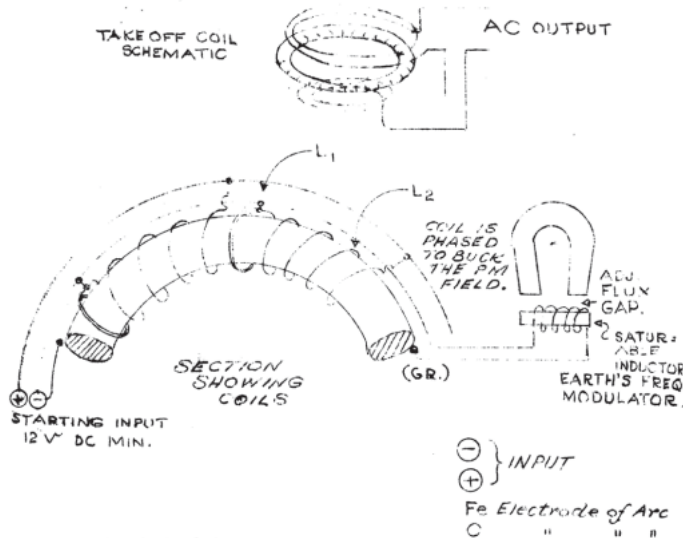 TAKE OFF COIL
SCHEMATIC
AC OUTPUT
L1
L2
COIL IS
PHASED
TO BUCK
THE PM
FIELD.
ADJ.
FLUX
GAP.
SATUR-
ABLE
INDUCTOR
EARTH'S FREQ
MODULATOR.
SECTION
SHOWING
COILS
(GR.)
+ -
STARTING INPUT
12 V DC MIN.
-
+
INPUT
Fe Electrode of Arc
C " " "